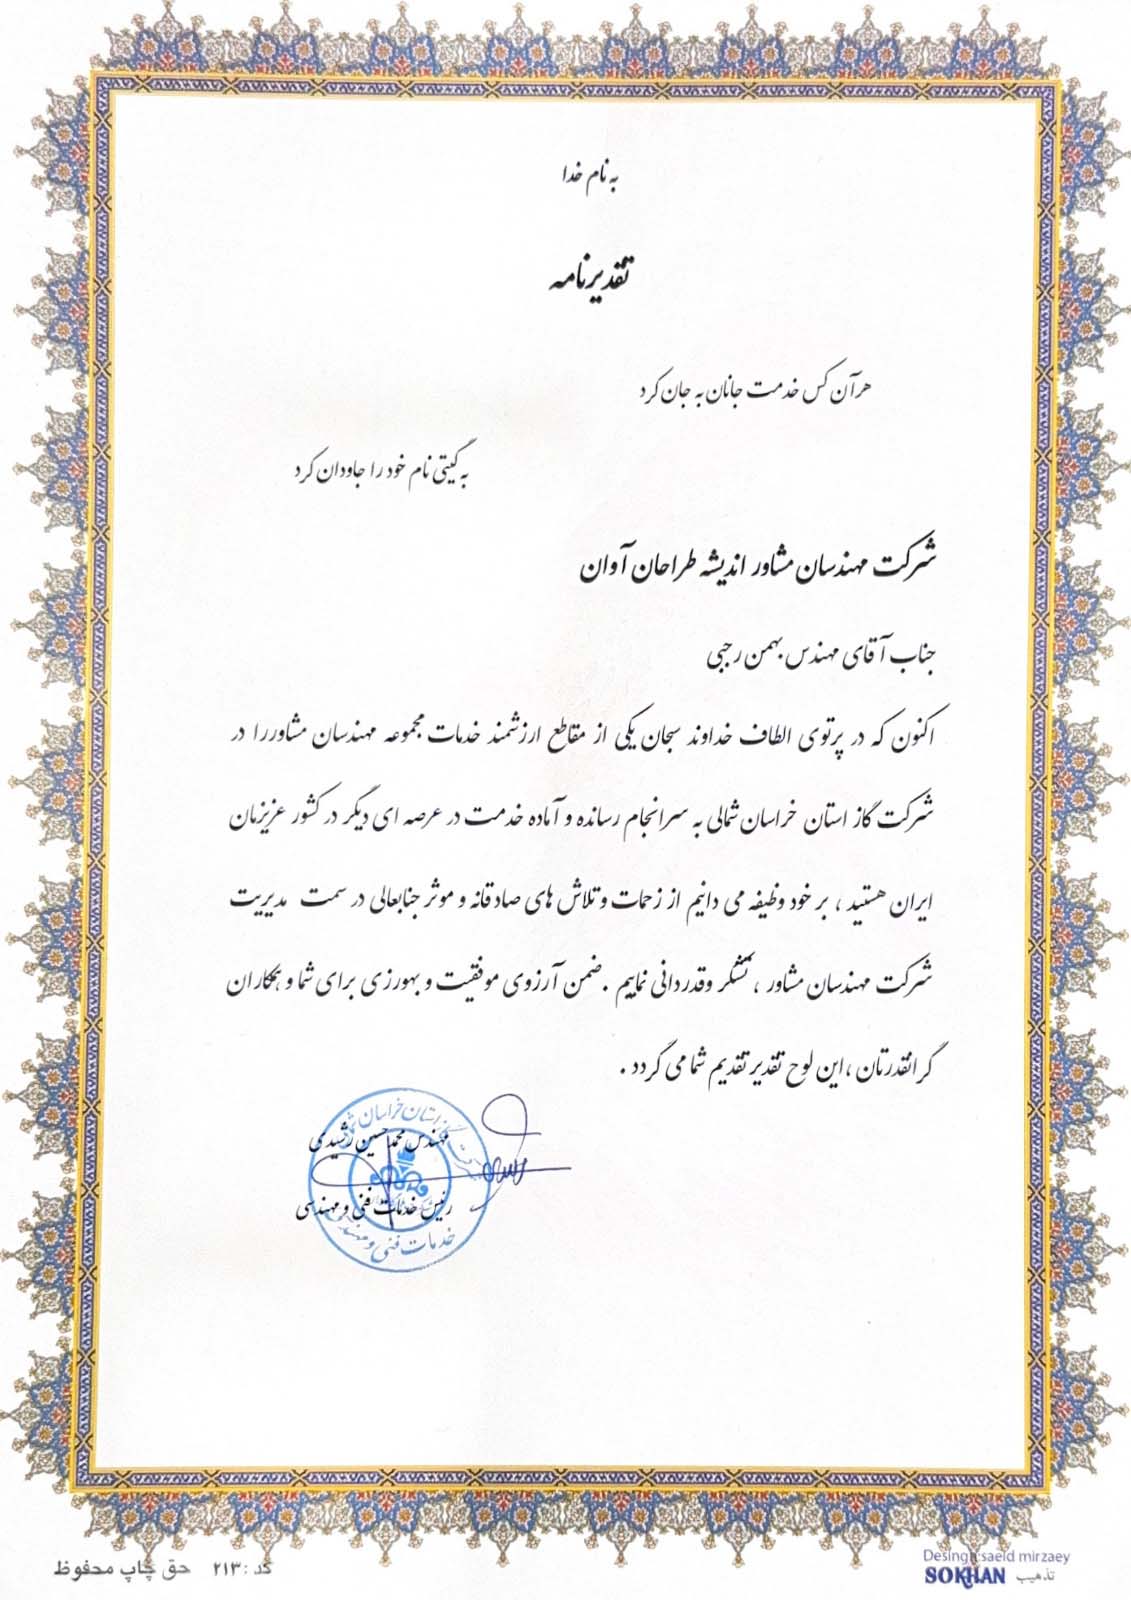 به نام خدا
تقدیرنامه
هرآن کس خدمت جانان به جان کرد
به گیتی نام خود را جاودان کرد
شرکت مهندسان مشاور اندیشه طراحان آوان
جناب آقای مهندس بهمن رجبی
اکنون که در پرتوی الطاف خداوند سبحان یکی از مقاطع ارزشمند خدمات مجموعه مهندسان مشاور را در
شرکت گاز استان خراسان شمالی به سرانجام رسانده و آماده خدمت در عرصه ای دیگر در کشور عزیزمان
ایران هستید ، بر خود وظیفه می دانیم از زحمات و تلاش های صادقانه و موثر جنابعالی در سمت مدیریت
شرکت مهندسان مشاور ، تشکر وقدردانی نماییم . ضمن آرزوی موفقیت و بهورزی برای شما و همکاران
گرانقدرتان ، این لوح تقدیر تقدیم شما می گردد .
مهندس محمد حسین رشیدی
رئیس خدمات فنی و مهندسی
خدمات فنی و مهندسی
کد : ۲۱۳ حق چاپ محفوظ
Desingh:saeid mirzaey
SOKHAN تذهیب